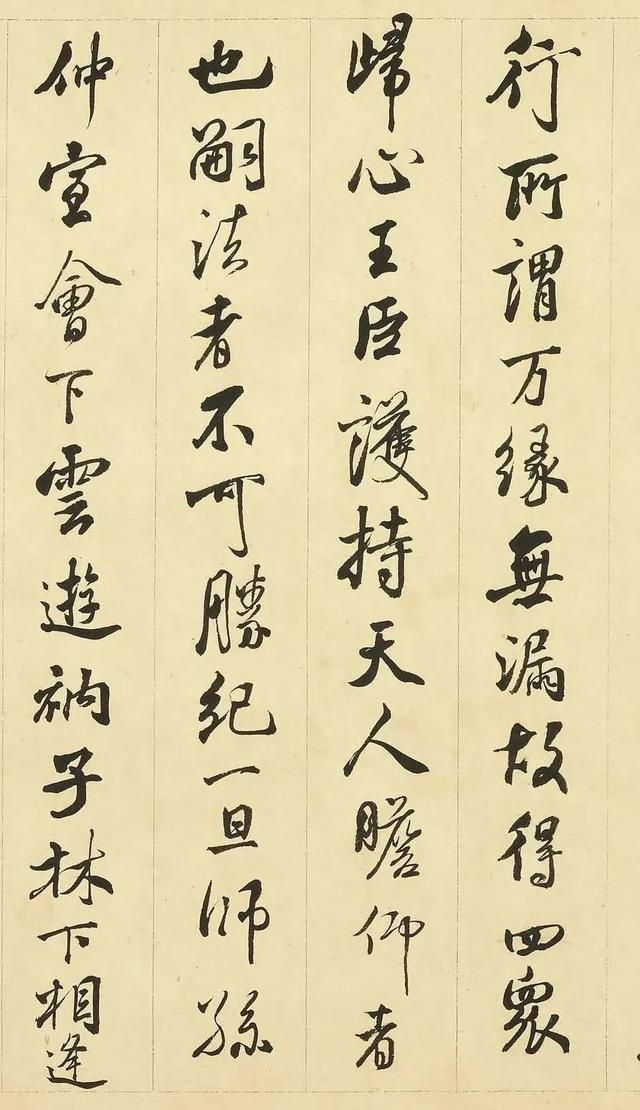 行所謂万緣無漏故得四眾
歸心王臣護持天人瞻仰者
也嗣法者不可勝紀一旦師孫
仲宣會下雲遊衲子林下相逢